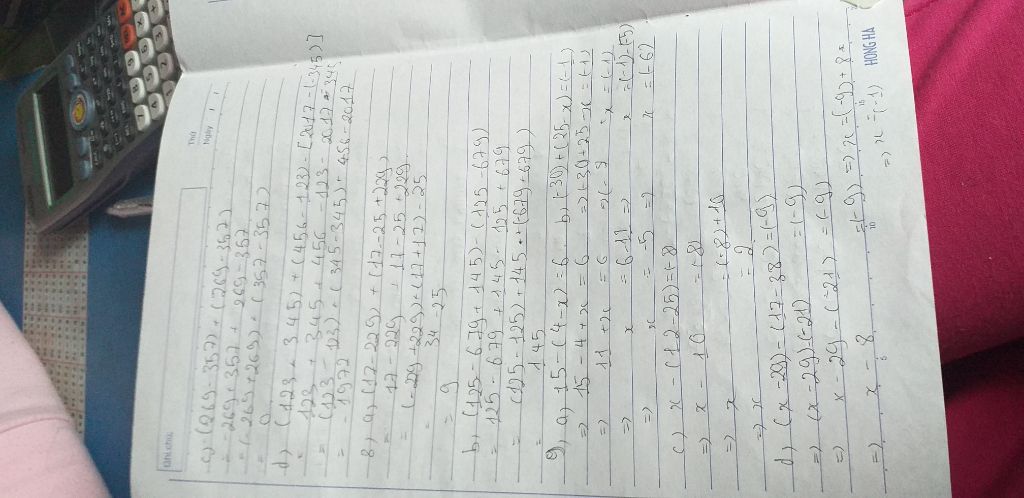 Thứ
Ngày
Ghi chú
c) -(269-357)+(269-357)
= -269+357+269-357
= (-269+269)+(357-357)
= 0
d) (123+345)+(456-123)-[2017-(-345)]
= 123+345+456-123-2017-345
= (123-123)+(345-345)+456-2017
8) a) (17-229)+(17-25+229)
= 17-229+17-25+229
= (-229+229)+(17+17)-25
= 34-25
= 9
b) (125-679+145)-(125-679)
= 125-679+145-125+679
= (125-125)+145+(679+679)
= 145
9) a) 15-(4-x)=6 b) (-30)+(25-x)=(-1)
=> 15-4+x=6 =>(-30)+25-x=(-1)
=> 11+x=6
=> x=6-11 => x=(-1)-(5)
=> x=-5 => x=(-6)
c) x-(12-25)=(-8)
=> x-
=> x = (-8)+10
=> x
d) (x-29)-(17-38)=(-9)
=> (x-29)-(-21)=(-9)
=> x-29-(-21)=(-9)
=> x-8=(-9) => x=(-9)+8
=> x=(-1)
HONG HA